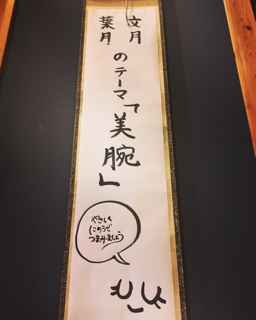 文月
葉月
のテーマ
「美腕」
やさしく
にのうで
つまみましょう